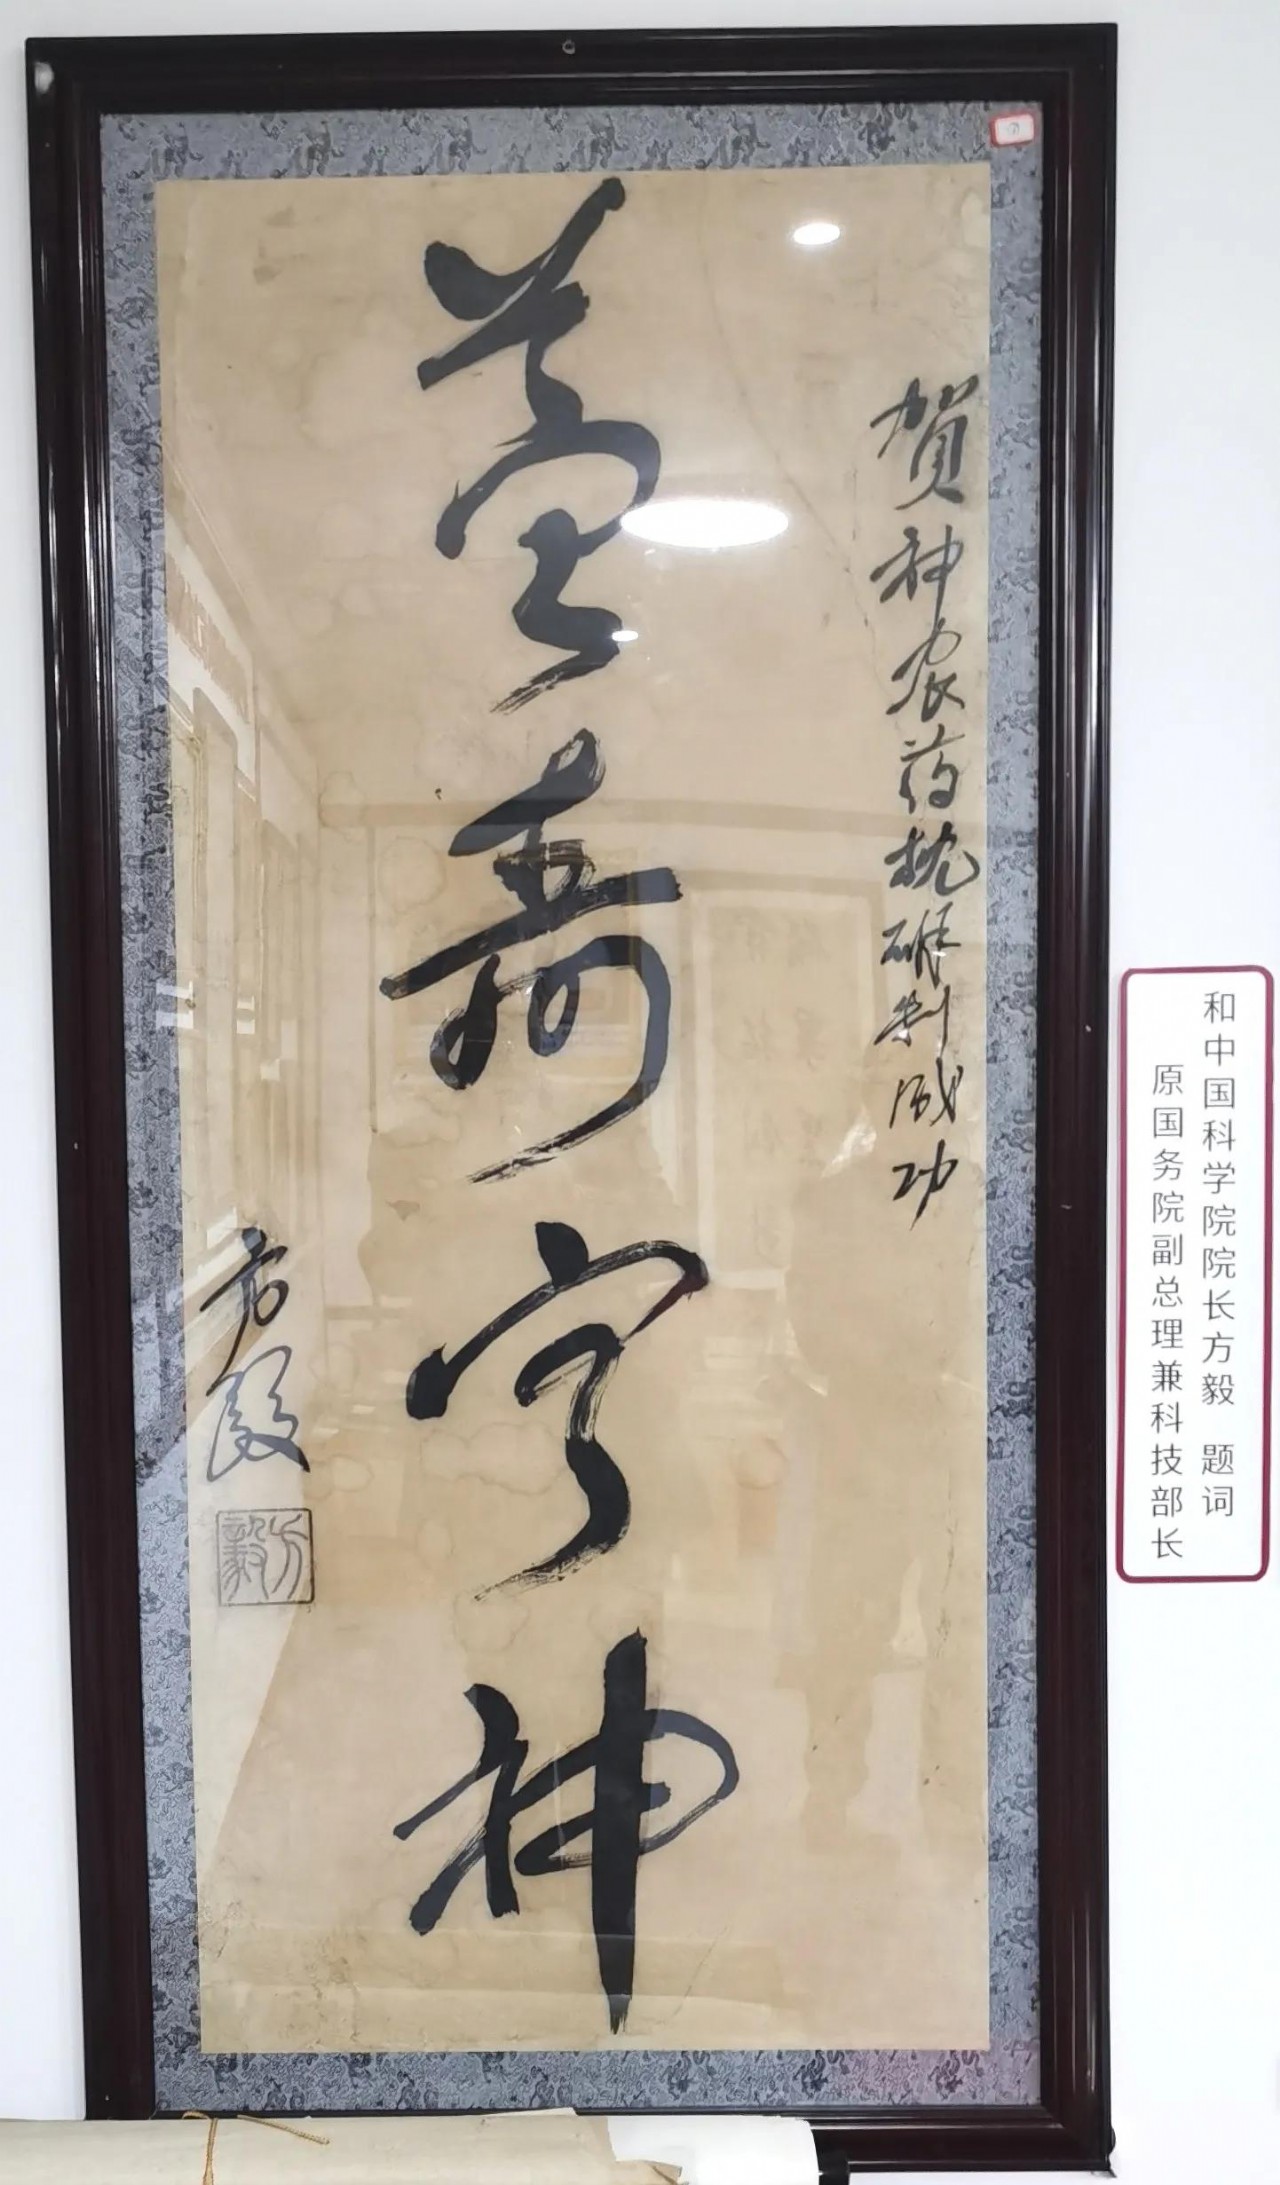 贺神农药枕研制成功
益寿宁神
方毅
方毅
原国务院副总理兼科技部长
和中国科学院院长方毅 题词